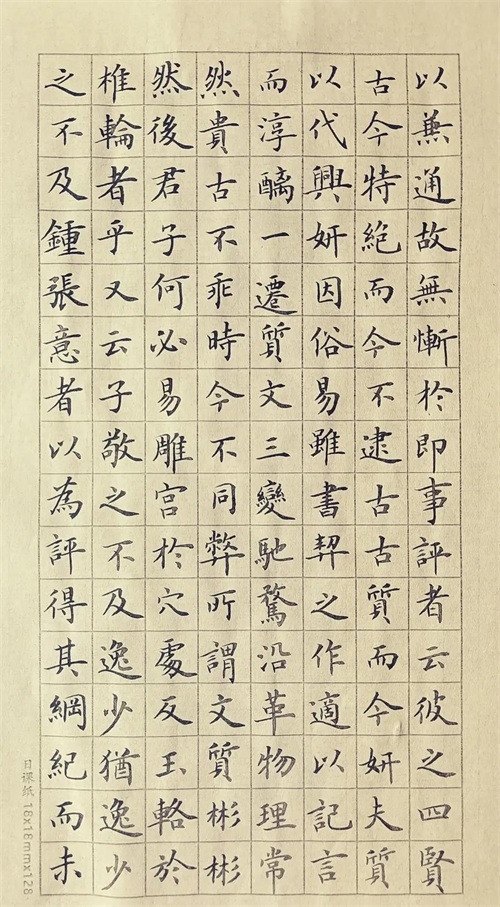 以兼通故無慚於即事評者云彼之四賢
古今特絕而今不逮古古質而今妍夫質
以代興妍因俗易雖書契之作適以記言
而淳醨一遷質文三變馳騖沿革物理常
然貴古不乖時今不同弊所謂文質彬彬
然後君子何必易雕宮於穴處反玉輅於
椎輪者乎又云子敬之不及逸少猶逸少
之不及鍾張意者以為評得其綱紀而未
日课纸 18x18mmx128